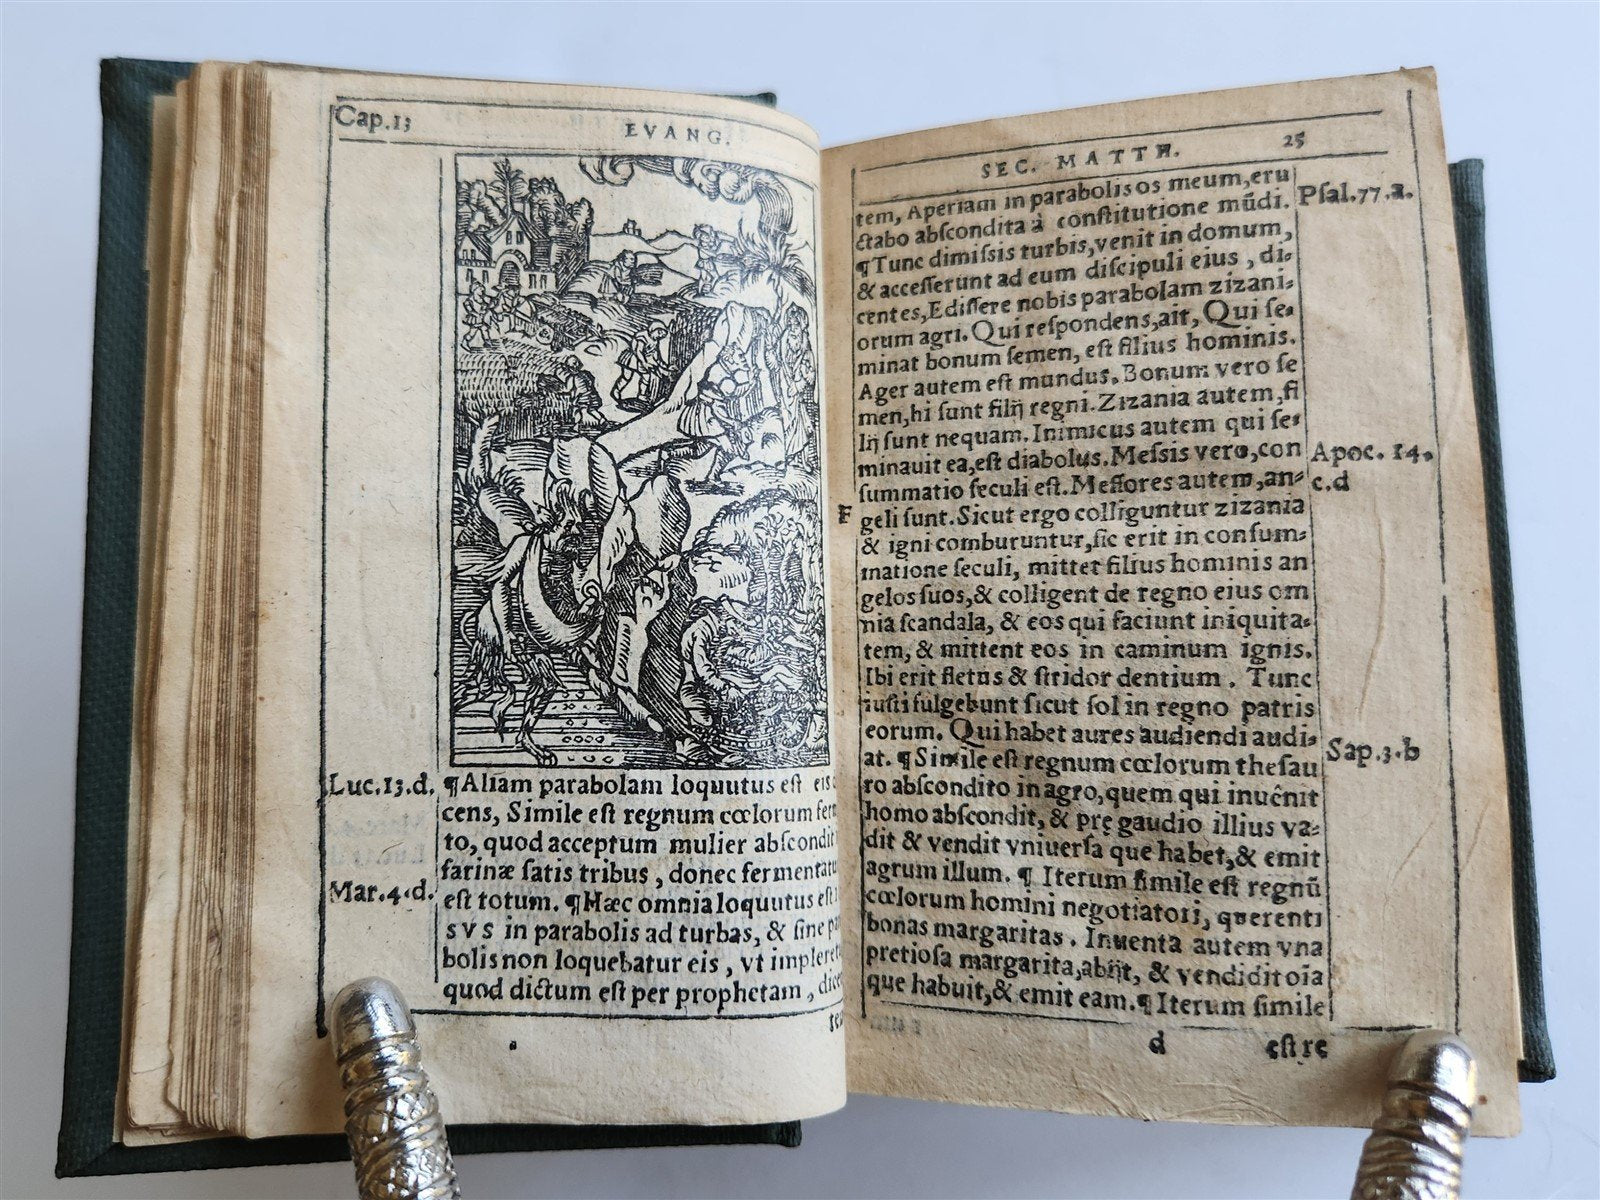 Cap.13
EVANG.
Luc.13.d.
¶Aliam parabolam loquutus est eis
cens, Simile est regnum cœlorum fer
to, quod acceptum mulier abſcondit
farinæ ſatis tribus, donec fermentatu
Mar.4.d.
eſt totum. ¶Hæc omnia loquutus eſt
SVS in parabolis ad turbas, & ſine pa
bolis non loquebatur eis, vt impleret
quod dictum eſt per prophetam, dice
SEC. MATTH.
25
tem, Aperiam in parabolis os meum, eru
Pſal.77.a.
ctabo abſcondita à conſtitutione mūdi.
¶Tunc dimiſsis turbis, venit in domum,
& acceſſerunt ad eum diſcipuli eius, di-
centes, Ediſſere nobis parabolam zizani-
orum agri. Qui reſpondens, ait, Qui ſe-
minat bonum ſemen, eſt filius hominis.
Ager autem eſt mundus. Bonum vero ſe
men, hi ſunt filij regni. Zizania autem, fi
lij ſunt nequam. Inimicus autem qui ſe-
minauit ea, eſt diabolus. Meſsis vero, con
Apoc. 14.
c.d
ſummatio ſeculi eſt. Meſſores autem, an-
F
geli ſunt. Sicut ergo colliguntur zizania
& igni comburuntur, ſic erit in conſum-
matione ſeculi, mittet filius hominis an
gelos ſuos, & colligent de regno eius om
nia ſcandala, & eos qui faciunt iniquita-
tem, & mittent eos in caminum ignis.
Ibi erit fletus & ſtridor dentium. Tunc
iuſti fulgebunt ſicut ſol in regno patris
eorum. Qui habet aures audiendi audi-
Sap.3.b
at. ¶Simile eſt regnum cœlorum theſau
ro abſcondito in agro, quem qui inuēnit
homo abſcondit, & prę gaudio illius va-
dit & vendit vniuerſa que habet, & emit
agrum illum. ¶ Iterum ſimile eſt regnū
cœlorum homini negotiatori, querenti
bonas margaritas. Inuenta autem vna
pretioſa margarita, abijt, & vendidit oīa
que habuit, & emit eam. ¶Iterum ſimile
d
eſt re